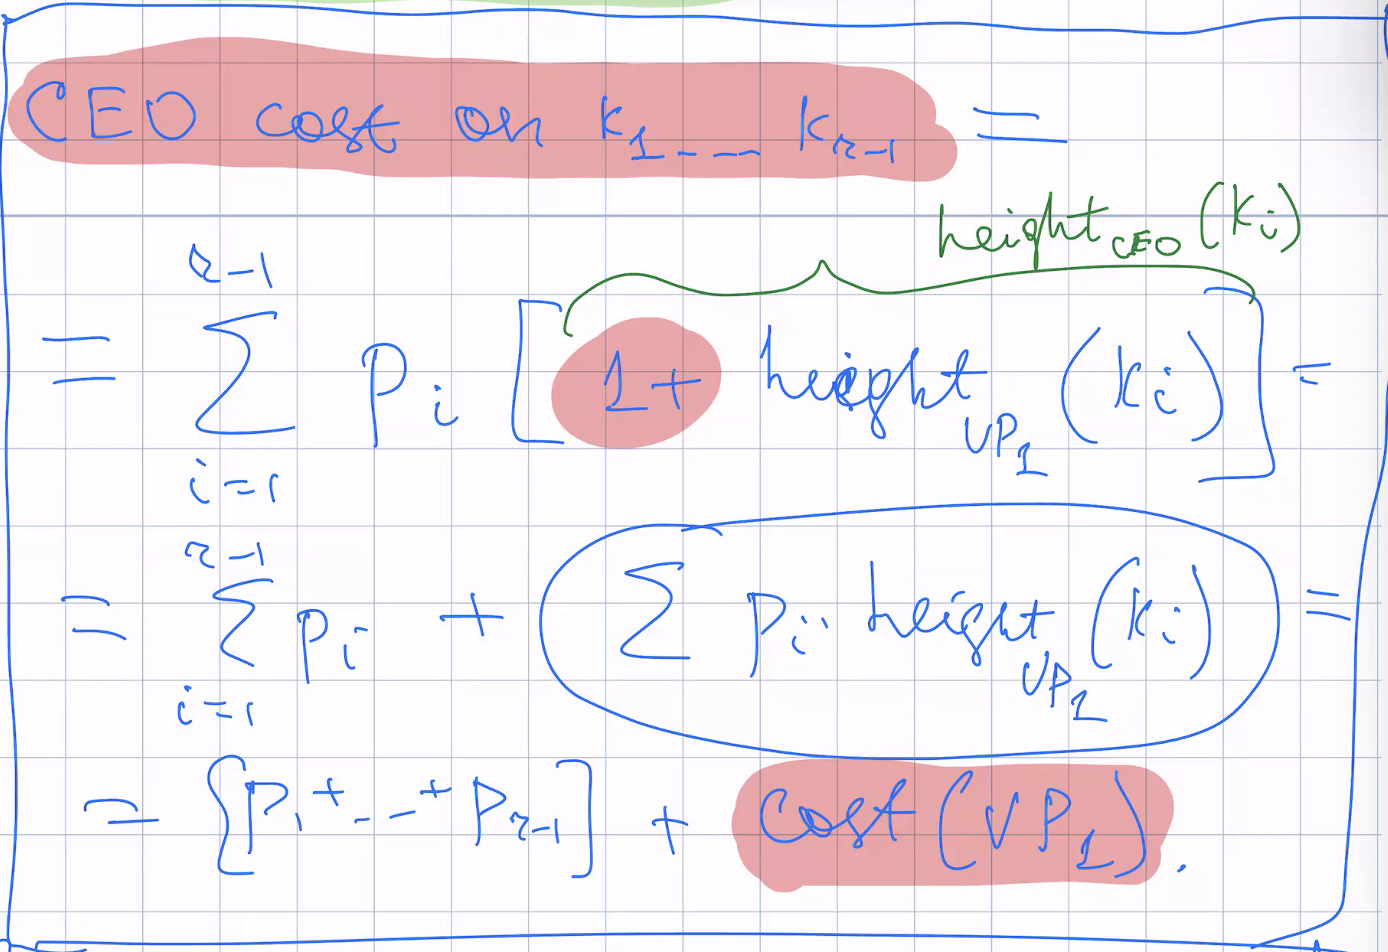 CEO cost on k₁ --- kᵣ₋₁ =
height_CEO (kᵢ)
= ∑_{i=1}^{r-1} pᵢ [ 1 + height_VP₁ (kᵢ) ] =
= ∑_{i=1}^{r-1} pᵢ + ∑ pᵢ height_VP₁ (kᵢ) =
= [p₁ + --- + pᵣ₋₁] + cost (VP₁).